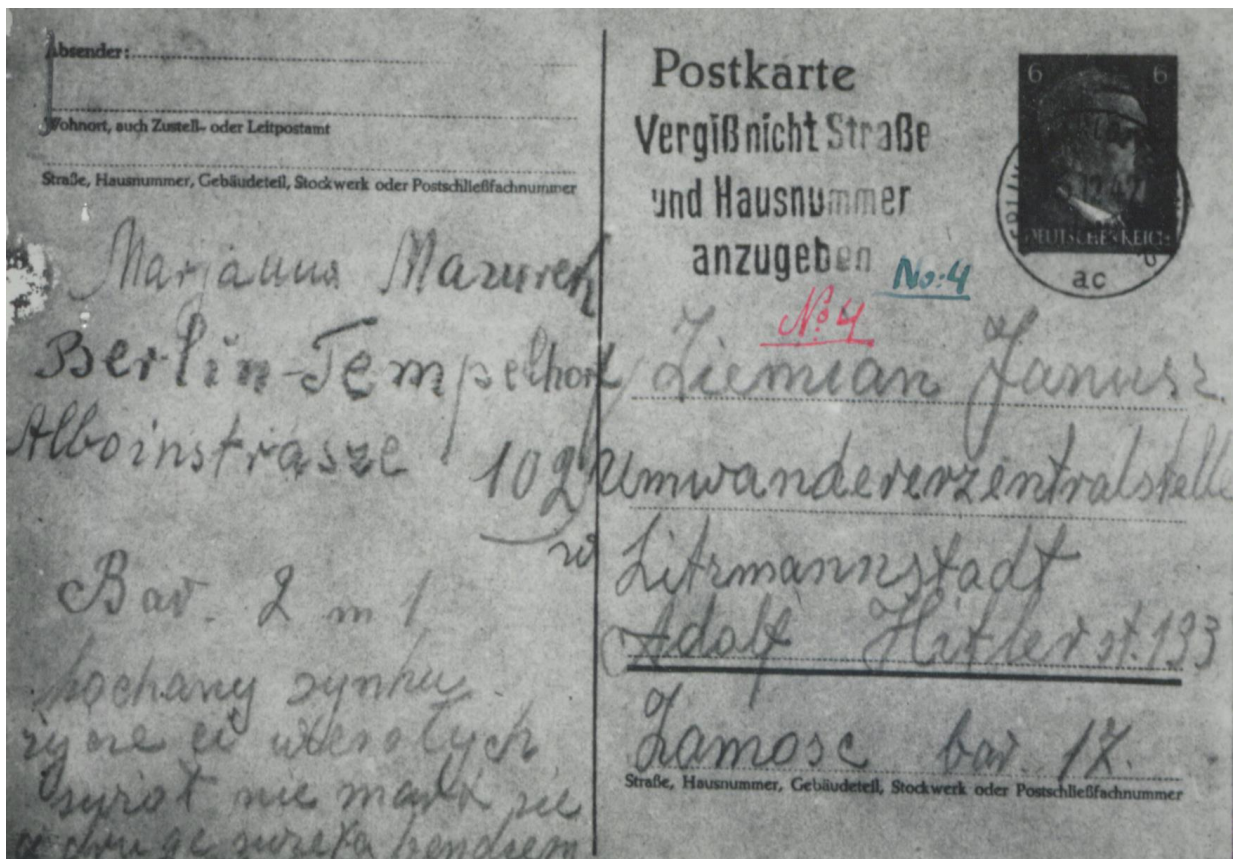 Absender:
Wohnort, auch Zustell- oder Leitpostamt
Straße, Hausnummer, Gebäudeteil, Stockwerk oder Postschließfachnummer
Marjanna Mazurek
Berlin-Tempelhof
Alboinstrasze 102
Bar. 2 m 1
kochany synku
zycze ci wesołych
swiąt nie martw sie
a druge swieta bendziem
Postkarte
Vergiß nicht Straße
und Hausnummer
anzugeben
6 6
DEUTSCHES REICH
ac
No:4
No 4
Ziemian Janusz
Umwandererzentralstelle
Litzmannstadt
Adolf Hitler st. 133
Zamosc bar. 17.
Straße, Hausnummer, Gebäudeteil, Stockwerk oder Postschließfachnummer